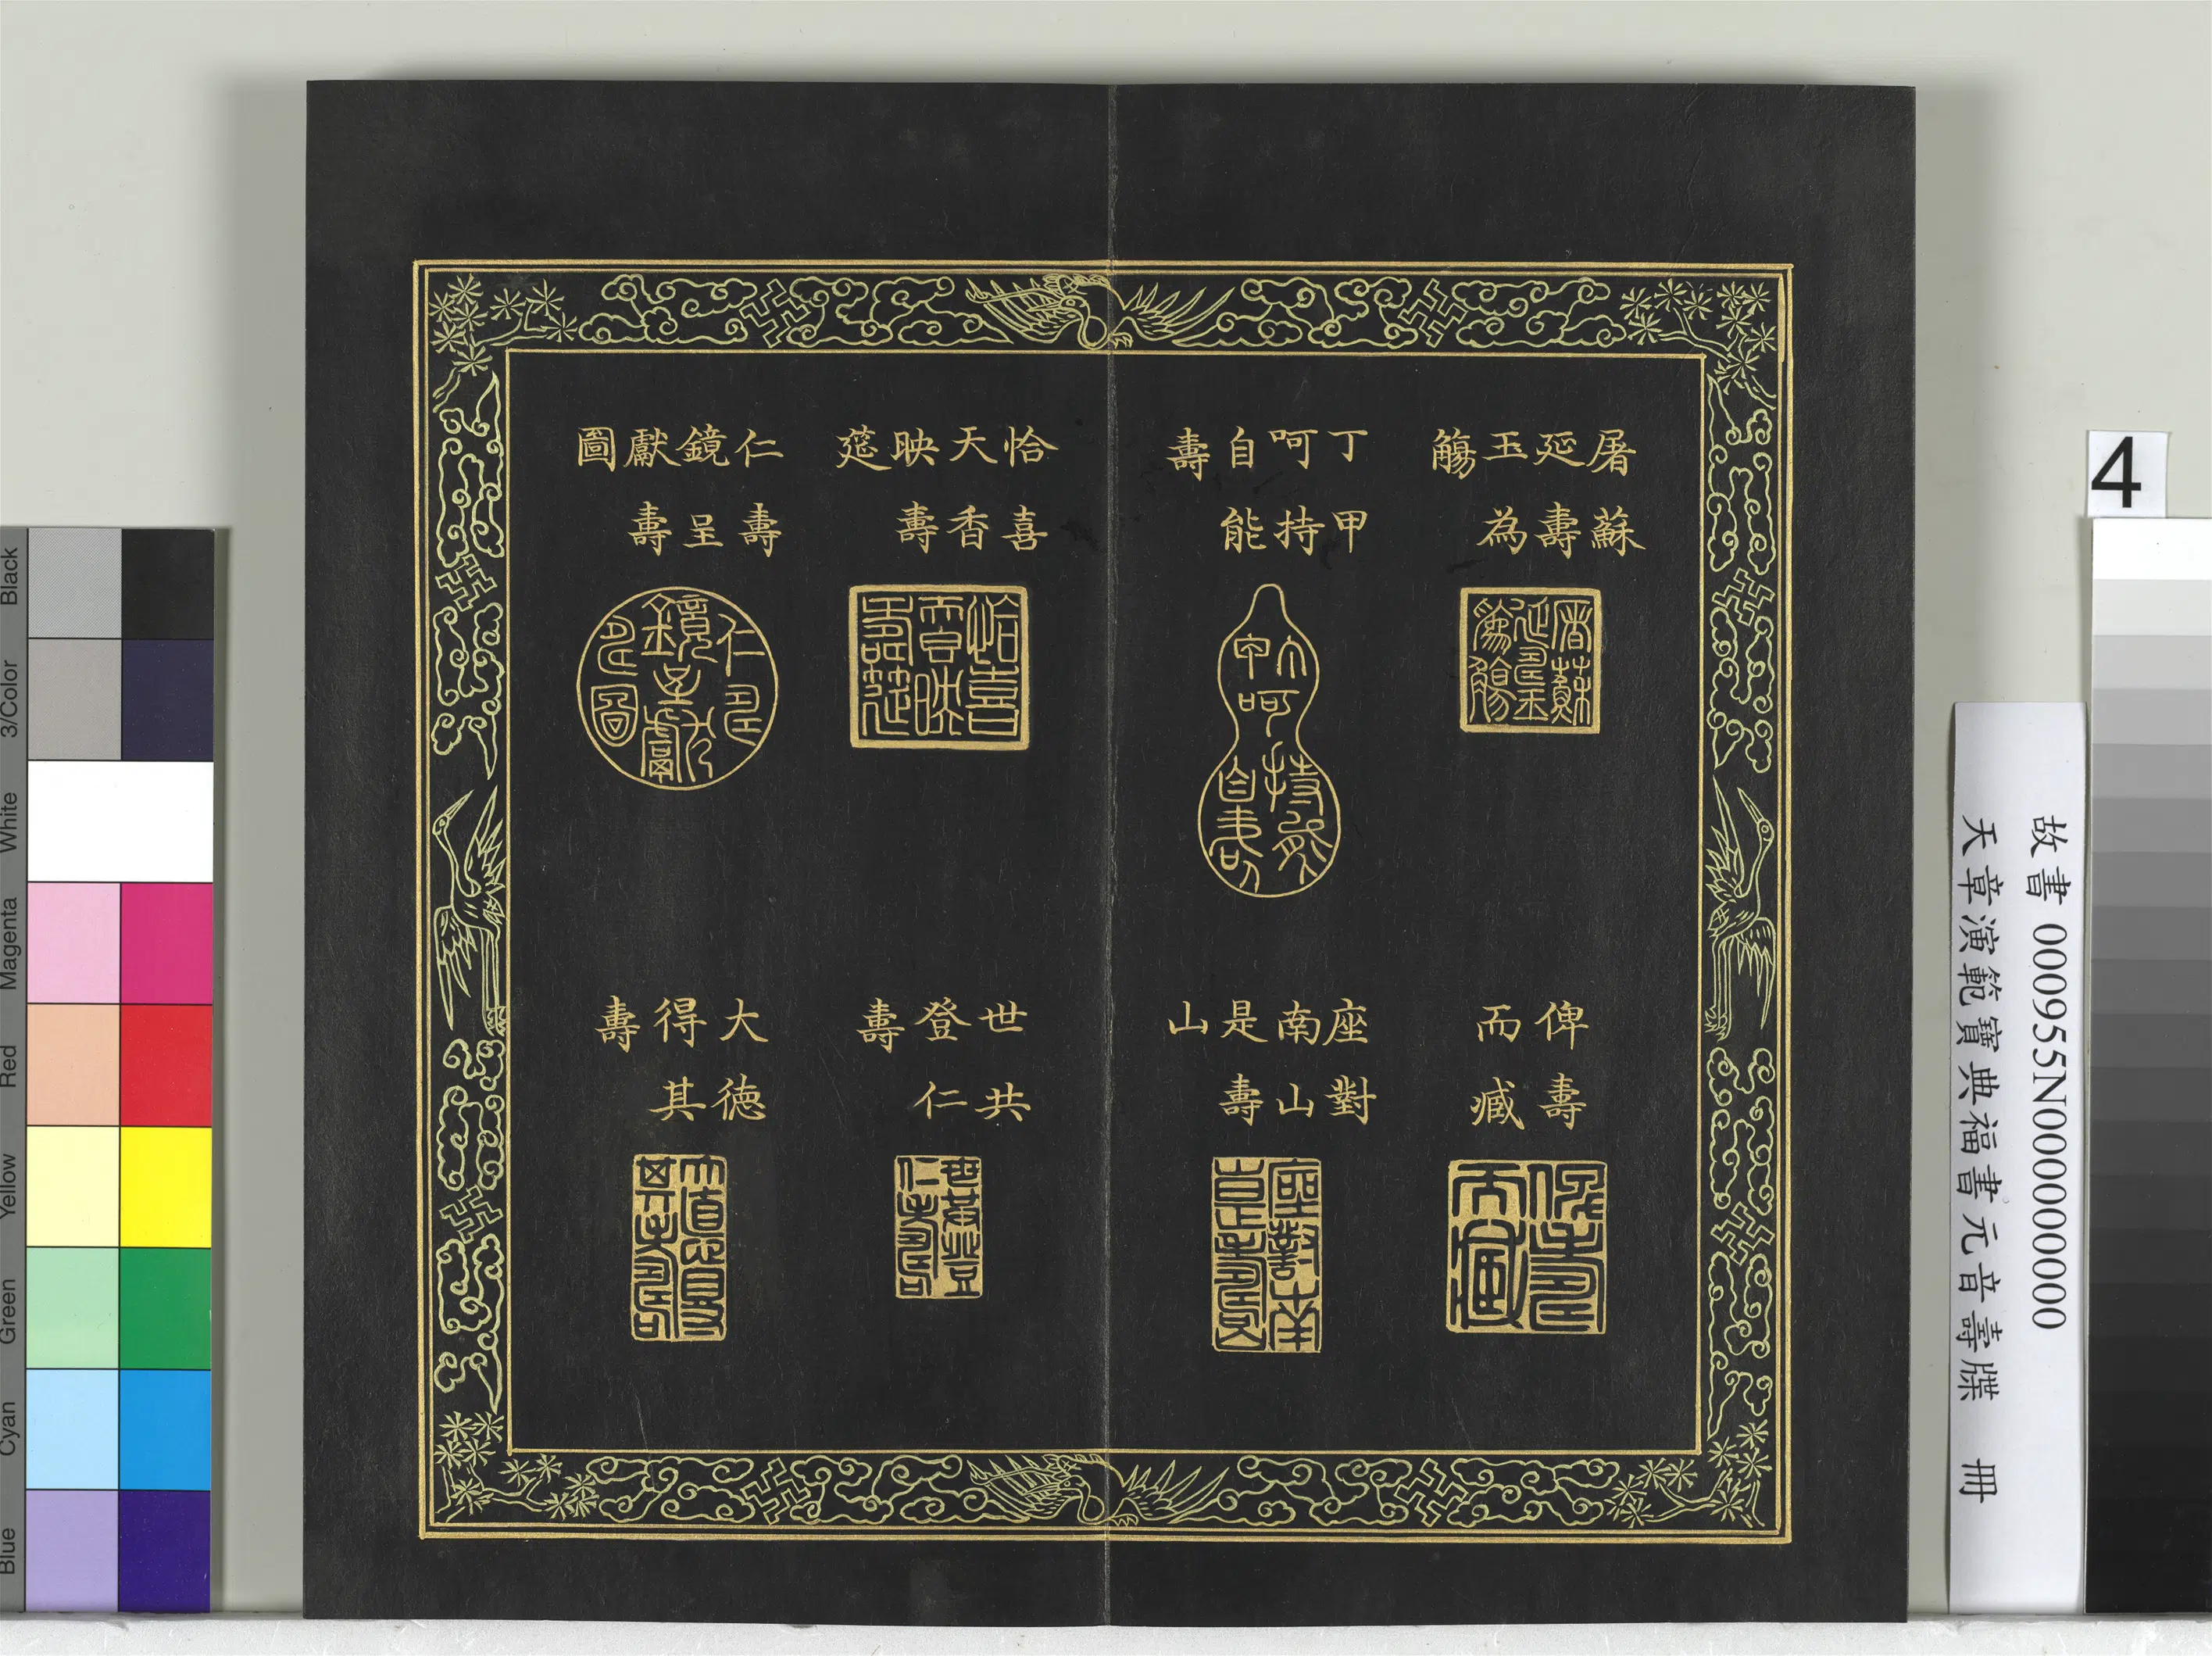 屠蘇
延壽
玉為
觴
丁甲
呵持
自能
壽
恰喜
天香
映壽
筵
仁壽
鏡呈
獻壽
圖
俾壽
而臧
座對
南山
是壽
山
世共
登仁
壽
大德
得其
壽
4
故書 000955N000000000
天章演範寶典福書元音壽牒 冊
Black
3/Color
White
Magenta
Red
Yellow
Green
Cyan
Blue